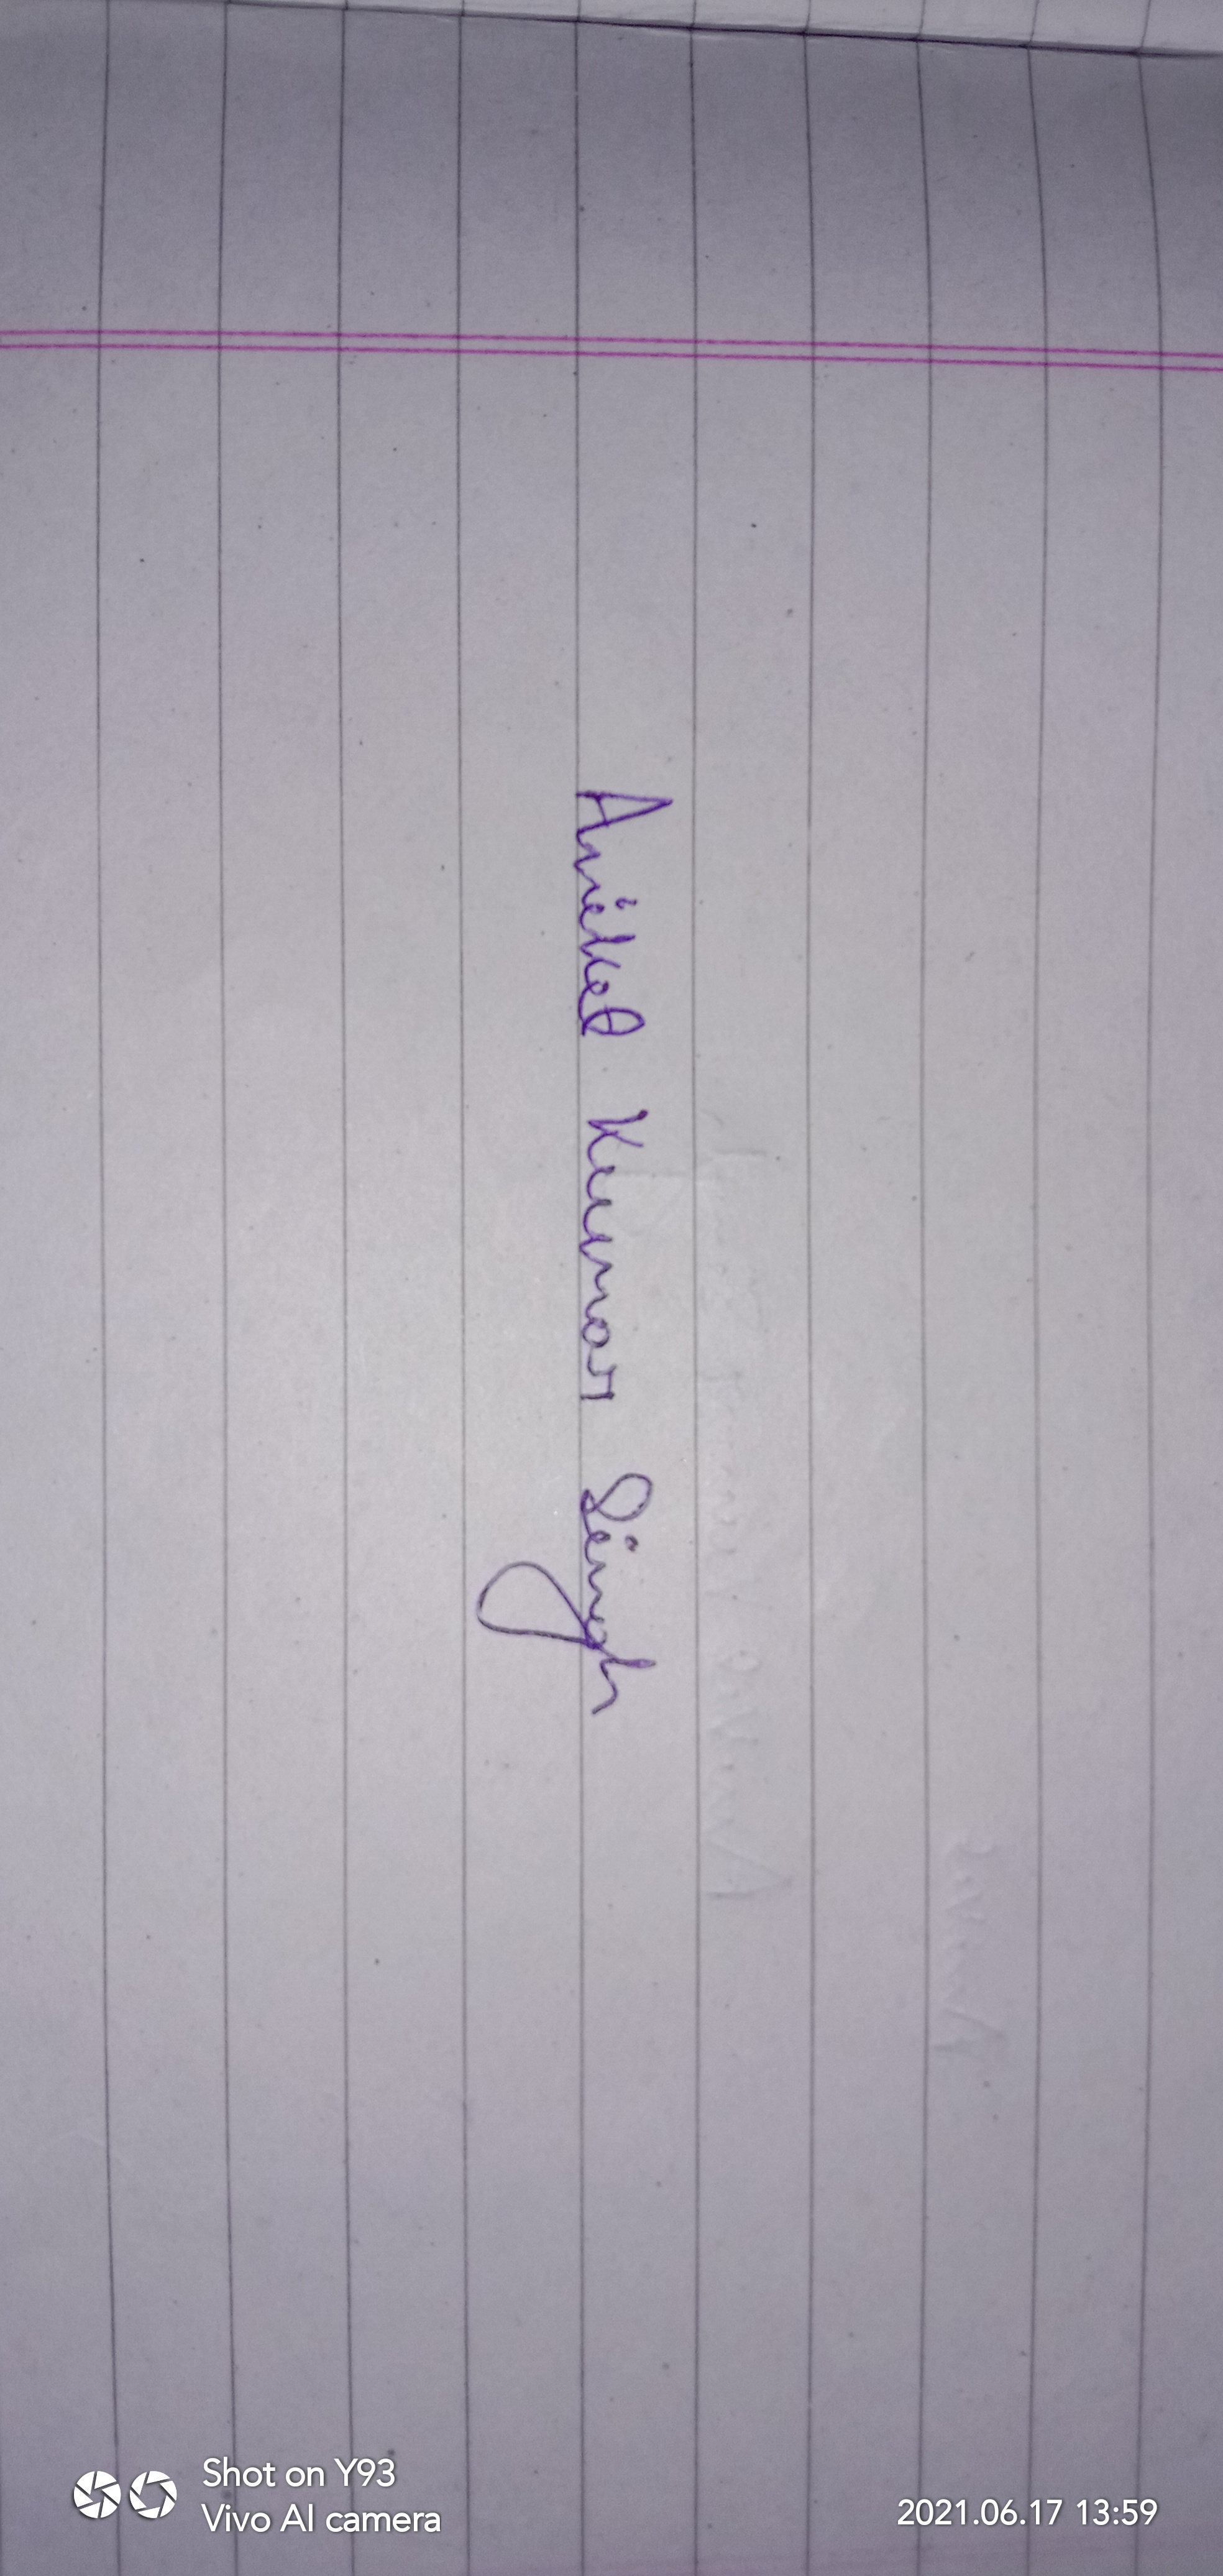 Aniket Kumar Singh
Shot on Y93
Vivo AI camera
2021.06.17 13:59